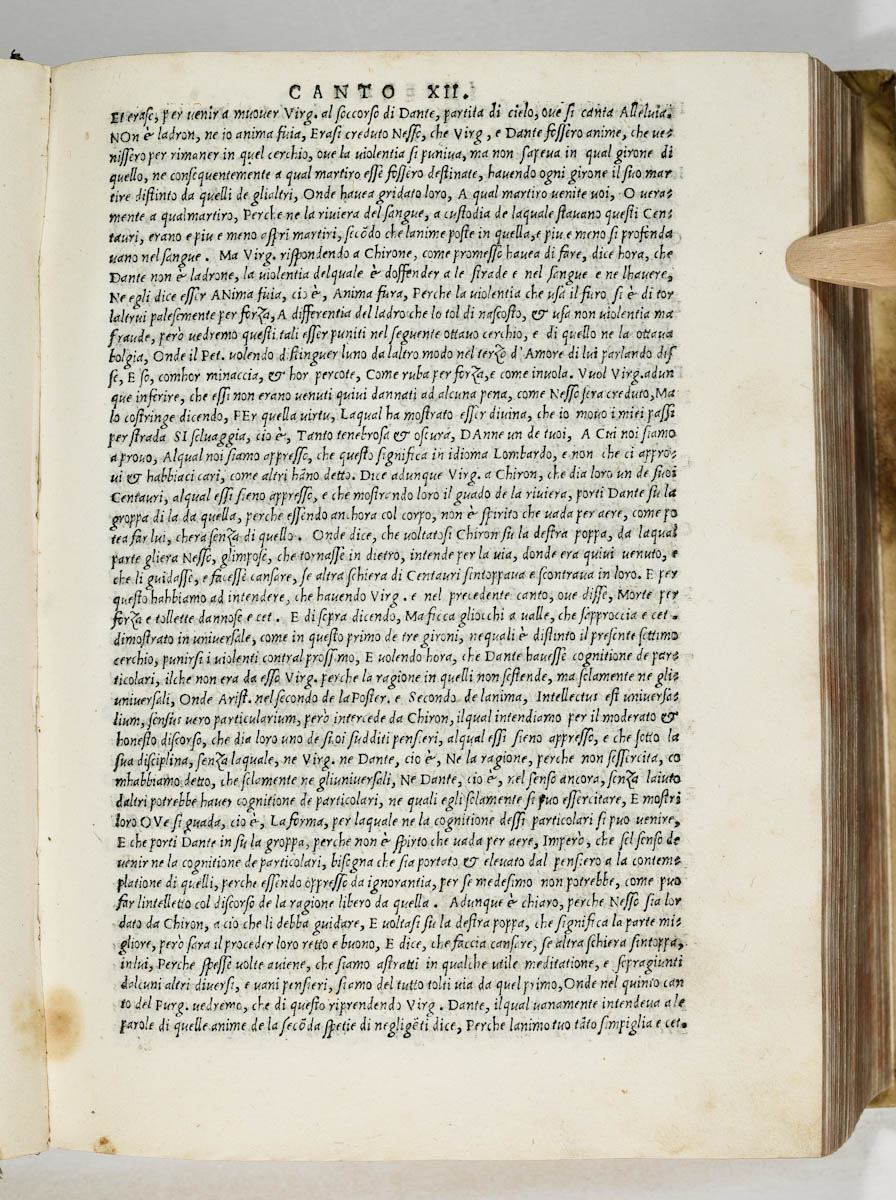 CANTO XII.
Et erase, per venir a muover Virg. al soccorso di Dante, partita di cielo, ove si canta Alleluia.
NOn è ladron, ne io anima fuia, Erasi creduto Nesso, che Virg, e Dante fossero anime, che ve=
nissero per rimaner in quel cerchio, ove la violentia si puniva, ma non sapeva in qual girone di
quello, ne consequentemente a qual martiro esse fossero destinate, havendo ogni girone il suo mar
tire distinto da quelli de glialtri, Onde havea gridato loro, A qual martiro venite voi, O vera=
mente a qualmartiro, Perche ne la riviera del sangue, a custodia de laquale stavano questi Cen=
tauri, erano e piu e meno aspri martiri, secōdo che lanime poste in quella, e piu e meno si profonda
vano nel sangue. Ma Virg. rispondendo a Chirone, come promesso havea di fare, dice hora, che
Dante non è ladrone, la violentia delquale è doffender a le strade e nel sangue e ne lhavere,
Ne egli dice esser ANima fuia, cio è, Anima fura, Perche la violentia che usa il furo si è di tor
laltrui palesemente per forza, A differentia del ladro che lo tol di nascosto, & usa non violentia ma
fraude, però vedremo questi tali esser puniti nel seguente ottavo cerchio, e di quello ne la ottava
bolgia, Onde il Pet. volendo distinguer luno da laltro modo nel terzo d'Amore di lui parlando dis
se, E so, comhor minaccia, & hor percote, Come ruba per forza, e come invola. Vuol Virg. adun
que inferire, che essi non erano venuti quivi dannati ad alcuna pena, come Nesso sera creduto, Ma
lo costringe dicendo, PEr quella virtu, Laqual ha mostrato esser divina, che io movo i miei passi
per strada SI selvaggia, cio è, Tanto tenebrosa & oscura, DAnne un de tuoi, A CUi noi siamo
a provo, Alqual noi siamo appresso, che questo significa in idioma Lombardo, e non che ci appro=
vi & habbiaci cari, come altri hāno detto. Dice adunque Virg. a Chiron, che dia loro un de suoi
Centauri, alqual essi sieno appresso, e che mostrando loro il guado de la riviera, porti Dante su la
groppa di la da quella, perche essendo anchora col corpo, non è spirito che vada per aere, come po
tea far lui, chera senza di quello. Onde dice, che voltatosi Chiron su la destra poppa, da laqual
parte gliera Nesso, glimpose, che tornasse in dietro, intende per la via, donde era quivi venuto, e
che li guidasse, e facesse cansare, se altra schiera di Centauri sintoppava e scontrava in loro. E per
questo habbiamo ad intendere, che havendo Virg. e nel precedente canto, ove disse, Morte per
forza e tollette dannose e cet. E di sopra dicendo, Ma ficca gliocchi a valle, che sapproccia e cet.
dimostrato in universale, come in questo primo de tre gironi, nequali è distinto il presente settimo
cerchio, punirsi i violenti contral prossimo, E volendo hora, che Dante havesse cognitione de par=
ticolari, ilche non era da esso Virg. perche la ragione in quelli non sestende, ma solamente ne gli=
universali, Onde Arist. nel secondo de la Poster. e Secondo de lanima, Intellectus est universa=
lium, sensus vero particularium, però intercede da Chiron, ilqual intendiamo per il moderato &
honesto discorso, che dia loro uno de suoi sudditi pensieri, alqual essi sieno appresso, e che sotto la
sua disciplina, senza laquale, ne Virg. ne Dante, cio è, Ne la ragione, perche non sessercita, co
mhabbiamo detto, che solamente ne gliuniversali, Ne Dante, cio è, nel senso ancora, senza laiuto
daltri potrebbe haver cognitione de particolari, ne quali egli solamente si puo essercitare, E mostri
loro OVe si guada, cio è, La forma, per laquale ne la cognitione dessi particolari si puo venire,
E che porti Dante in su la groppa, perche non è spirto che vada per aere, Imperò, che sel senso de
venir ne la cognitione de particolari, bisogna che sia portato & elevato dal pensiero a la contem=
platione di quelli, perche essendo oppresso da ignorantia, per se medesimo non potrebbe, come puo
far lintelletto col discorso de la ragione libero da quella. Adunque è chiaro, perche Nesso sia lor
dato da Chiron, a cio che li debba guidare, E voltasi su la destra poppa, che significa la parte mi=
gliore, però sara il proceder loro retto e buono, E dice, che faccia cansare, se altra schiera sintoppa,
inlui, Perche spesse volte aviene, che siamo astratti in qualche utile meditatione, e sopragiunti
dalcuni altri diversi, e vani pensieri, siamo del tutto tolti via da quel primo, Onde nel quinto can
to del Purg. vedremo, che di questo riprendendo Virg. Dante, ilqual vanamente intendeva a le
parole di quelle anime de la secōda spetie di negligēti dice, Perche lanimo tuo tāto simpiglia e cet.